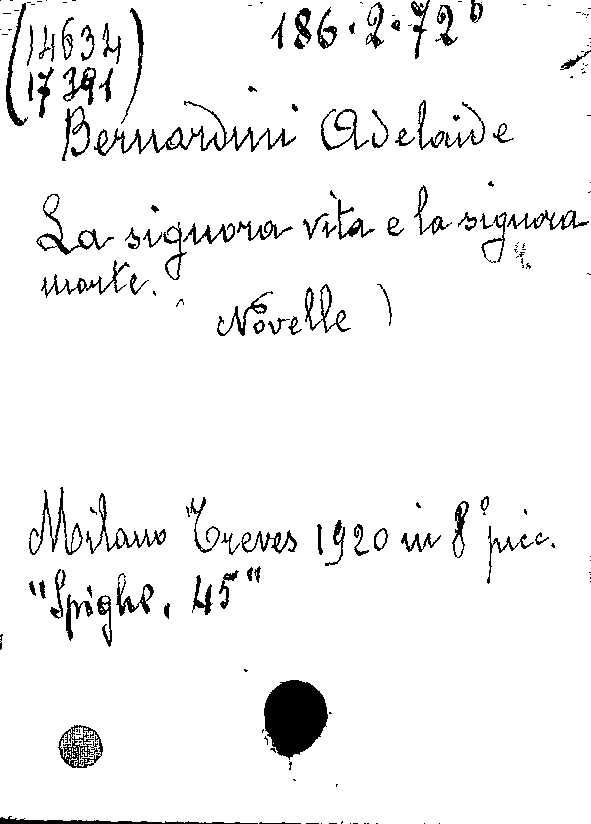 (14634
17391)
186.2.72b
Bernardini Adelaide
La signora vita e la signora
morte.
(Novelle)
Milano Treves 1920 in 8° picc.
"Spighe. 45"